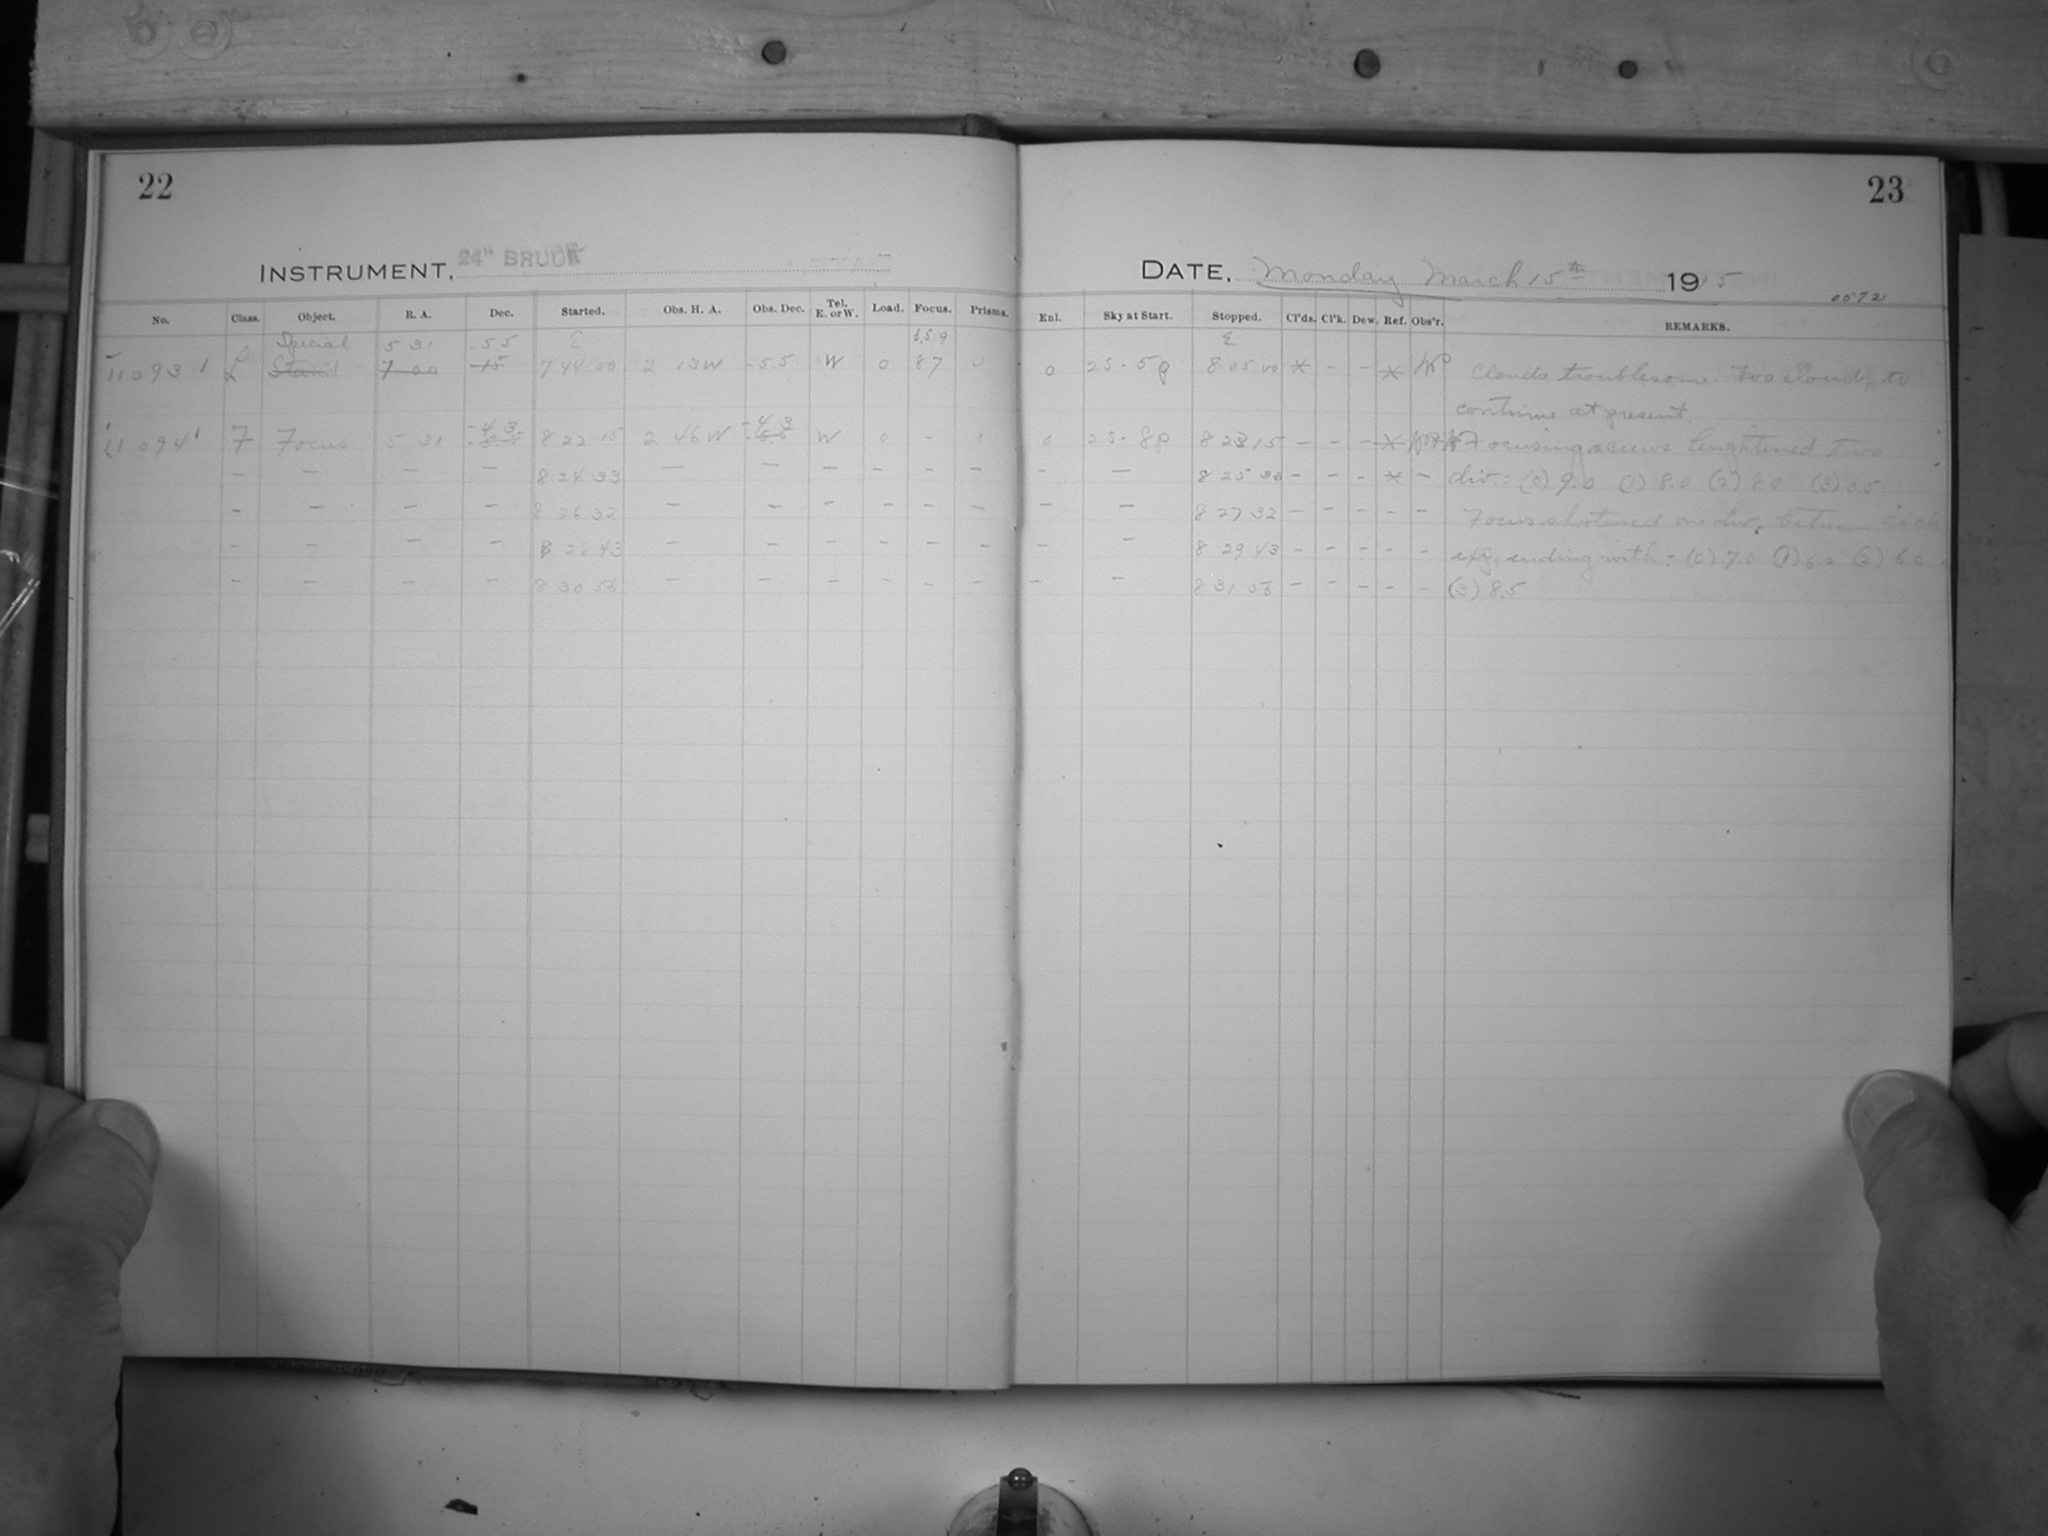 22
INSTRUMENT, 24" BRUCE
No. Class. Object. R. A. Dec. Started. Obs. H. A. Obs. Dec. Tel. E. or W. Load. Focus. Prisms.
Special 5 31 -55 ε 659
11093 L Stand 7 00 -15 7 44 00 2 13 W -55 W 0 87 0
-4.3 -4.3
11094 F Focus 5 31 -5.5 8 22 15 2 46 W -5.5 W 0 - 0
- - - - 8 24 33 - - - - - -
- - - - 8 26 32 - - - - - -
- - - - 8 28 43 - - - - - -
- - - - 8 30 56 - - - - - -
23
DATE, Monday March 15th 1915
0572
Enl. Sky at Start. Stopped. Cl'ds. Cl'k. Dew. Ref. Obs'r. REMARKS.
ε
0 2S-5p 8 05 00 * - - * Clouds troublesome. Too cloudy to
continue at present.
0 2S-8p 8 23 15 - - - * Focusing screws lenghtened two
- - 8 25 33 - - - * - div.: (0) 9.0 (1) 8.0 (2) 8.0 (3) 0.5
- - 8 27 32 - - - - - Focus shortened one div. between each
- - 8 29 43 - - - - - exp. ending with:- (0) 7.0 (1) 6.0 (2) 6.0
- - 8 31 56 - - - - - (3) 8.5